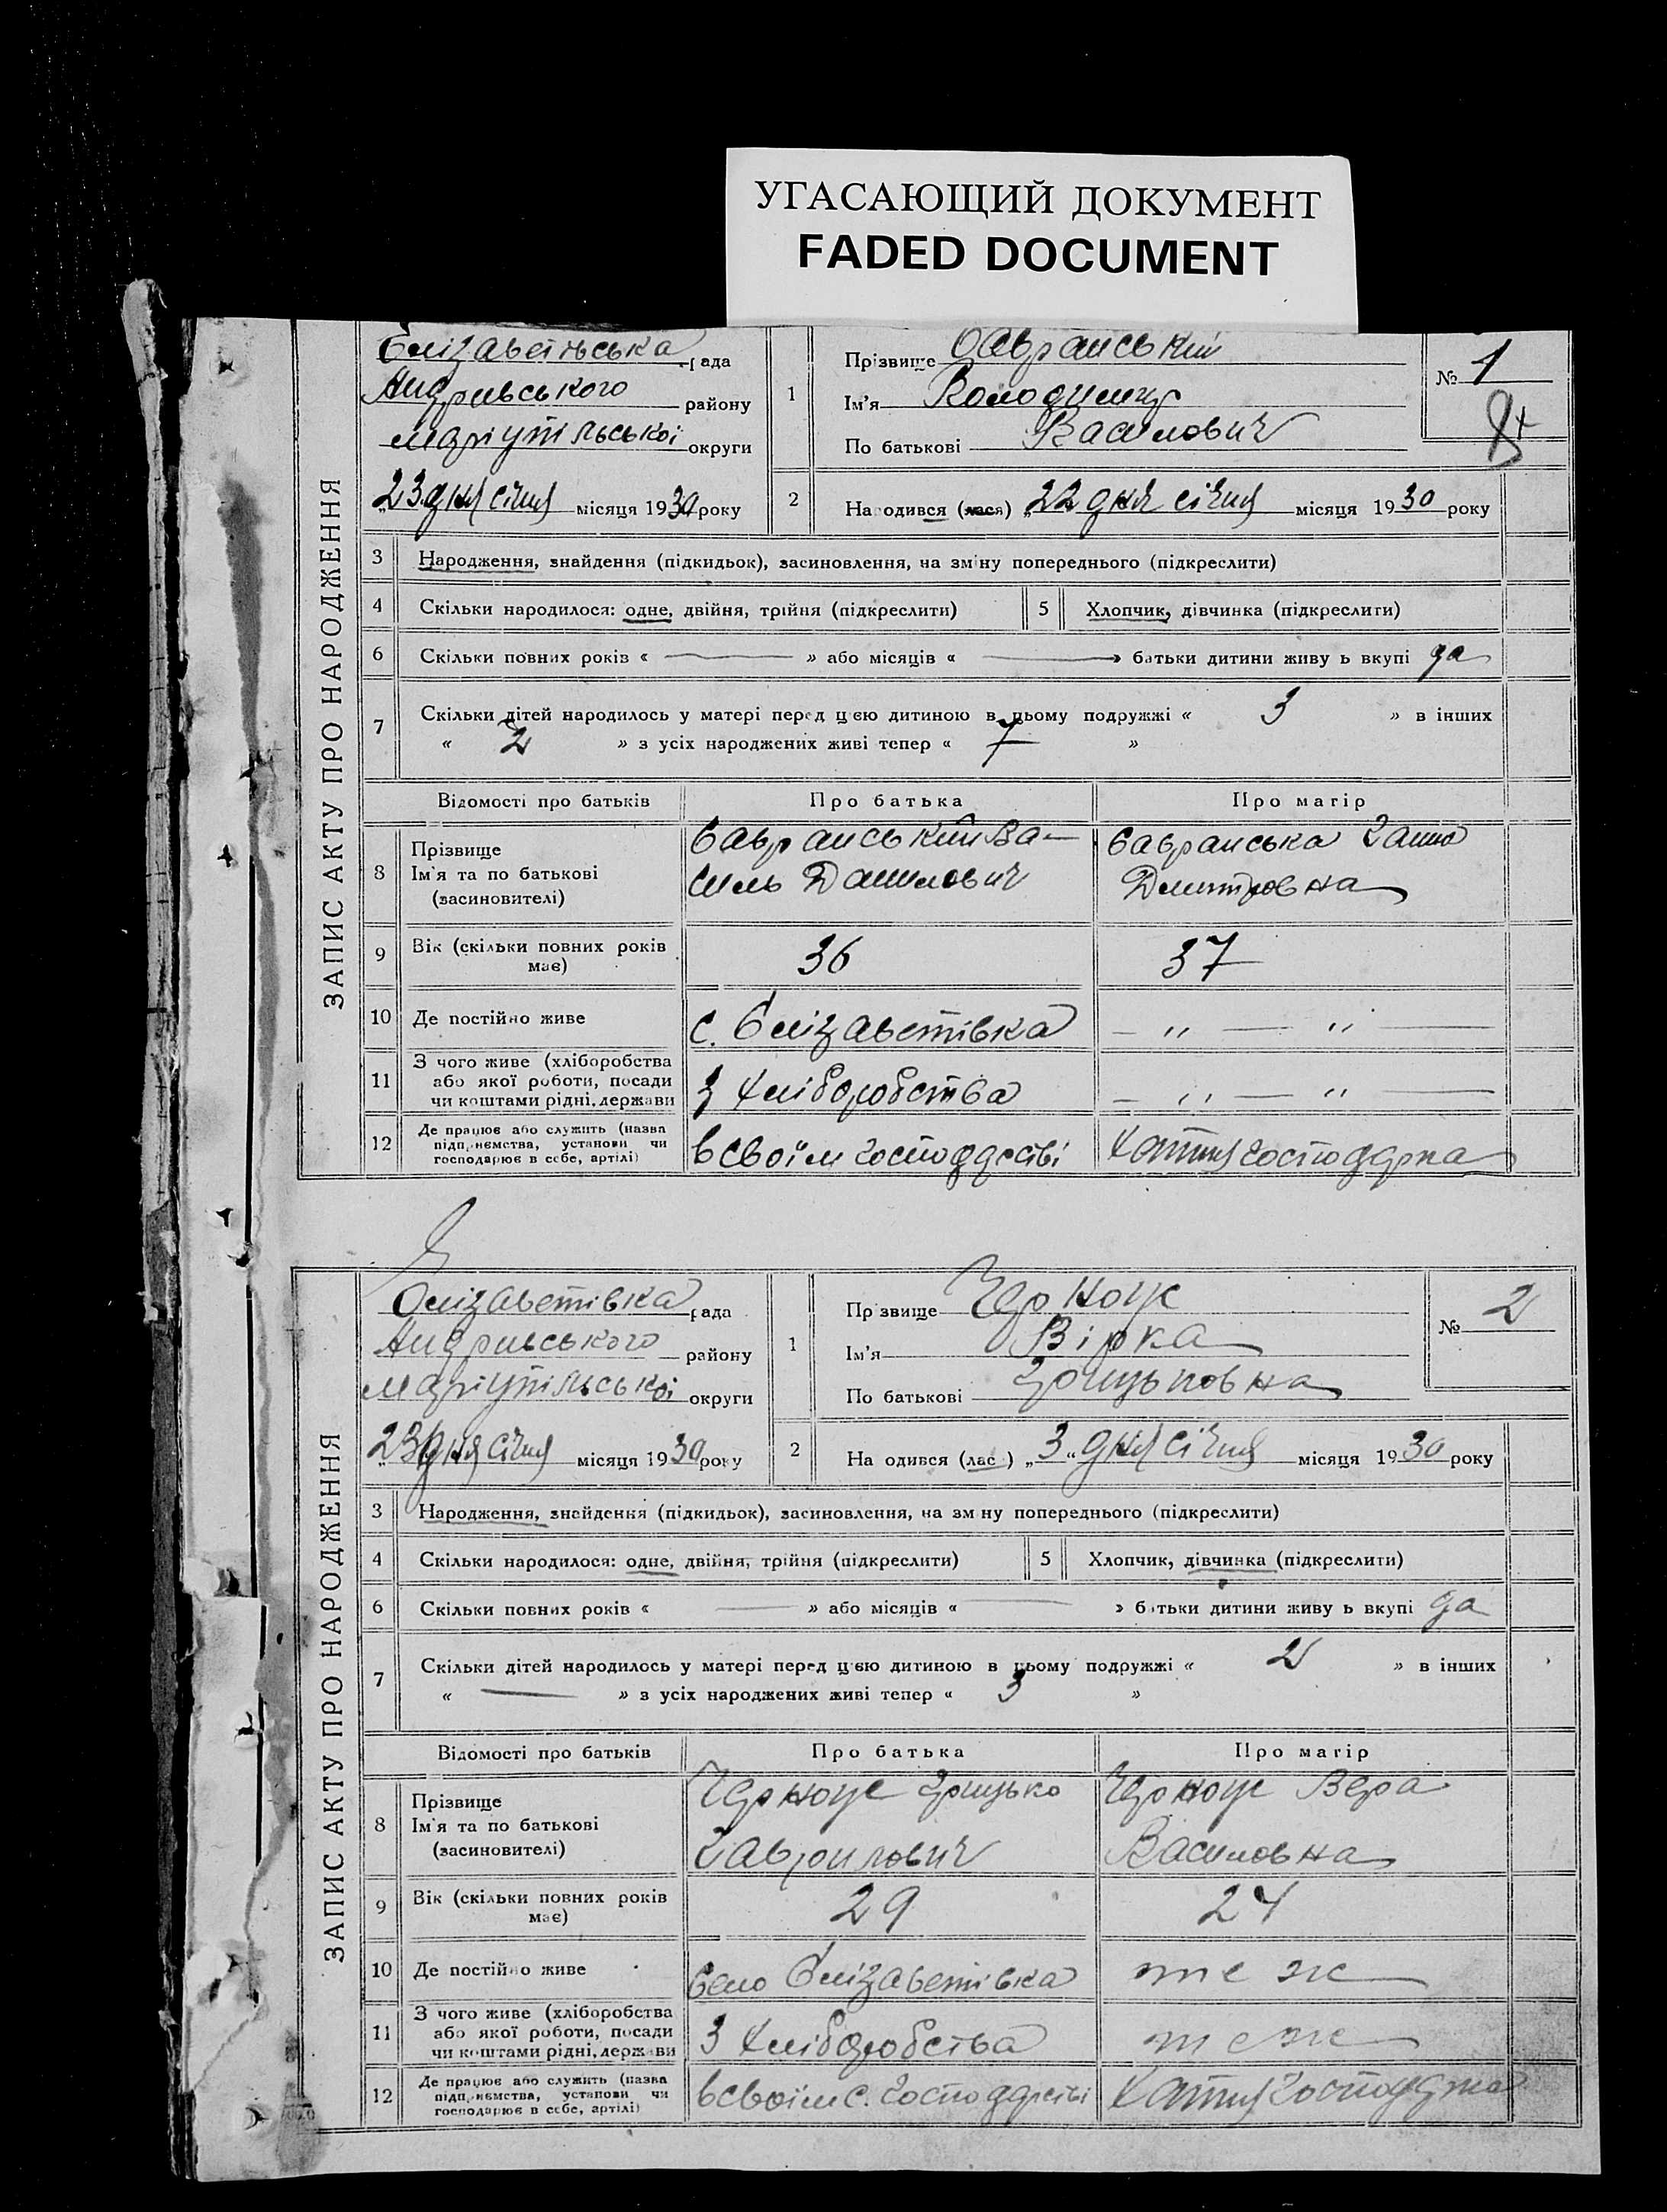 УГАСАЮЩИЙ ДОКУМЕНТ
FADED DOCUMENT
ЗАПИС АКТУ ПРО НАРОДЖЕННЯ
Єлізаветська рада
Андрівського району
Маріупільської округи
„23 дня січня місяця 1930 року
1 Прізвище Савранський
Ім'я Володимир
По батькові Василович
№ 1
2 Народився (лася) „22 дня січня місяця 1930 року
3 Народження, знайдення (підкидьок), засиновлення, на зміну попереднього (підкреслити)
4 Скільки народилося: одне, двійня, трійня (підкреслити) 5 Хлопчик, дівчинка (підкреслити)
6 Скільки повних років « — » або місяців « — » батьки дитини живуть вкупі да
7 Скільки дітей народилось у матері перед цією дитиною в цьому подружжі « 3 » в інших
« 2 » з усіх народжених живі тепер « 7 »
Відомості про батьків Про батька Про матір
8 Прізвище Ім'я та по батькові (засиновителі) Савранський Василь Данилович Савранська Ганна Дмитровна
9 Вік (скільки повних років має) 36 37
10 Де постійно живе с. Єлізаветівка — „ — „ —
11 З чого живе (хліборобства або якої роботи, посади чи коштами рідні, держави З хліборобства — „ — „ —
12 Де працює або служить (назва підприємства, установи чи господарює в себе, артілі) в своїм господарстві Хатня господарка
ЗАПИС АКТУ ПРО НАРОДЖЕННЯ
Єлізаветівка рада
Андрівського району
Маріупільської округи
„23 дня січня місяця 1930 року
1 Прізвище Чорноус
Ім'я Вірка
По батькові Грицьковна
№ 2
2 Народився (лась) „3" дня січня місяця 1930 року
3 Народження, знайдення (підкидьок), засиновлення, на зміну попереднього (підкреслити)
4 Скільки народилося: одне, двійня, трійня (підкреслити) 5 Хлопчик, дівчинка (підкреслити)
6 Скільки повних років « — » або місяців « — » батьки дитини живуть вкупі да
7 Скільки дітей народилось у матері перед цією дитиною в цьому подружжі « 2 » в інших
« — » з усіх народжених живі тепер « 3 »
Відомості про батьків Про батька Про матір
8 Прізвище Ім'я та по батькові (засиновителі) Чорноус Грицько Гаврилович Чорноус Вера Василовна
9 Вік (скільки повних років має) 29 24
10 Де постійно живе Село Єлізаветівка теж
11 З чого живе (хліборобства або якої роботи, посади чи коштами рідні, держави З хліборобства теж
12 Де працює або служить (назва підприємства, установи чи господарює в себе, артілі) в своїм с. господарстві Хатня господарка